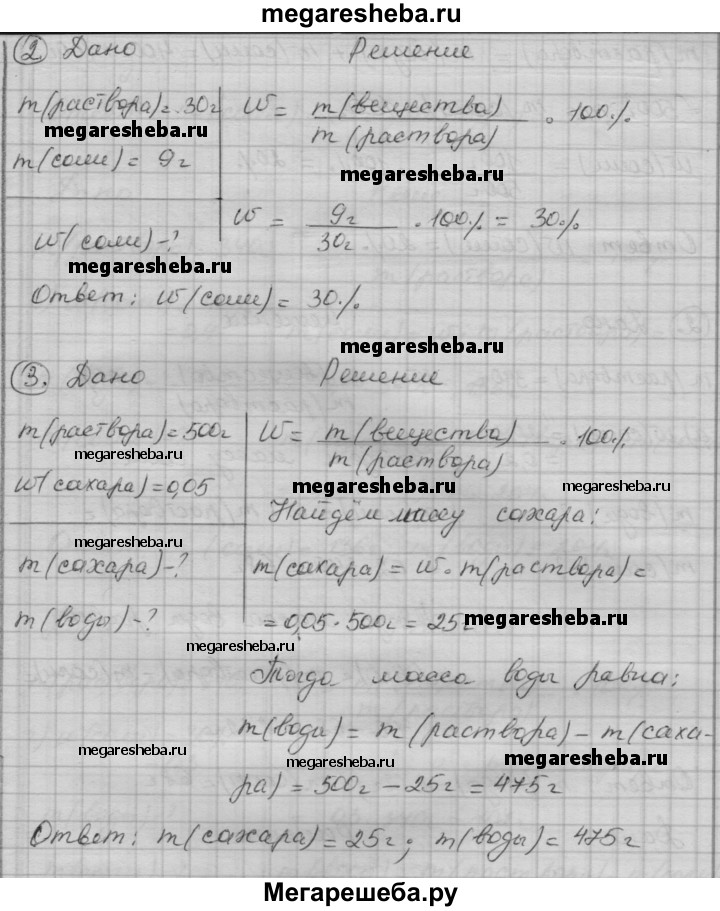 megaresheba.ru
② Дано Решение
m(раствора)= 30г W = m(вещества) / m(раствора) · 100%
megaresheba.ru
m(соли) = 9г
megaresheba.ru
W = 9г / 30г · 100% = 30%
W(соли) - ?
megaresheba.ru
Ответ: W(соли) = 30%
megaresheba.ru
③. Дано Решение
m(раствора)=500г W = m(вещества) / m(раствора) · 100%
megaresheba.ru
W(сахара)=0,05 megaresheba.ru megaresheba.ru
Найдём массу сахара:
megaresheba.ru
m(сахара)-? m(сахара) = W · m(раствора) =
m(воды)-? = 0,05 · 500г = 25г megaresheba.ru
megaresheba.ru
Тогда масса воды равна:
m(воды) = m(раствора) – m(саха-
megaresheba.ru megaresheba.ru
ра) = 500г – 25г = 475г
Ответ: m(сахара) = 25г; m(воды) = 475г
Мегарешеба.ру